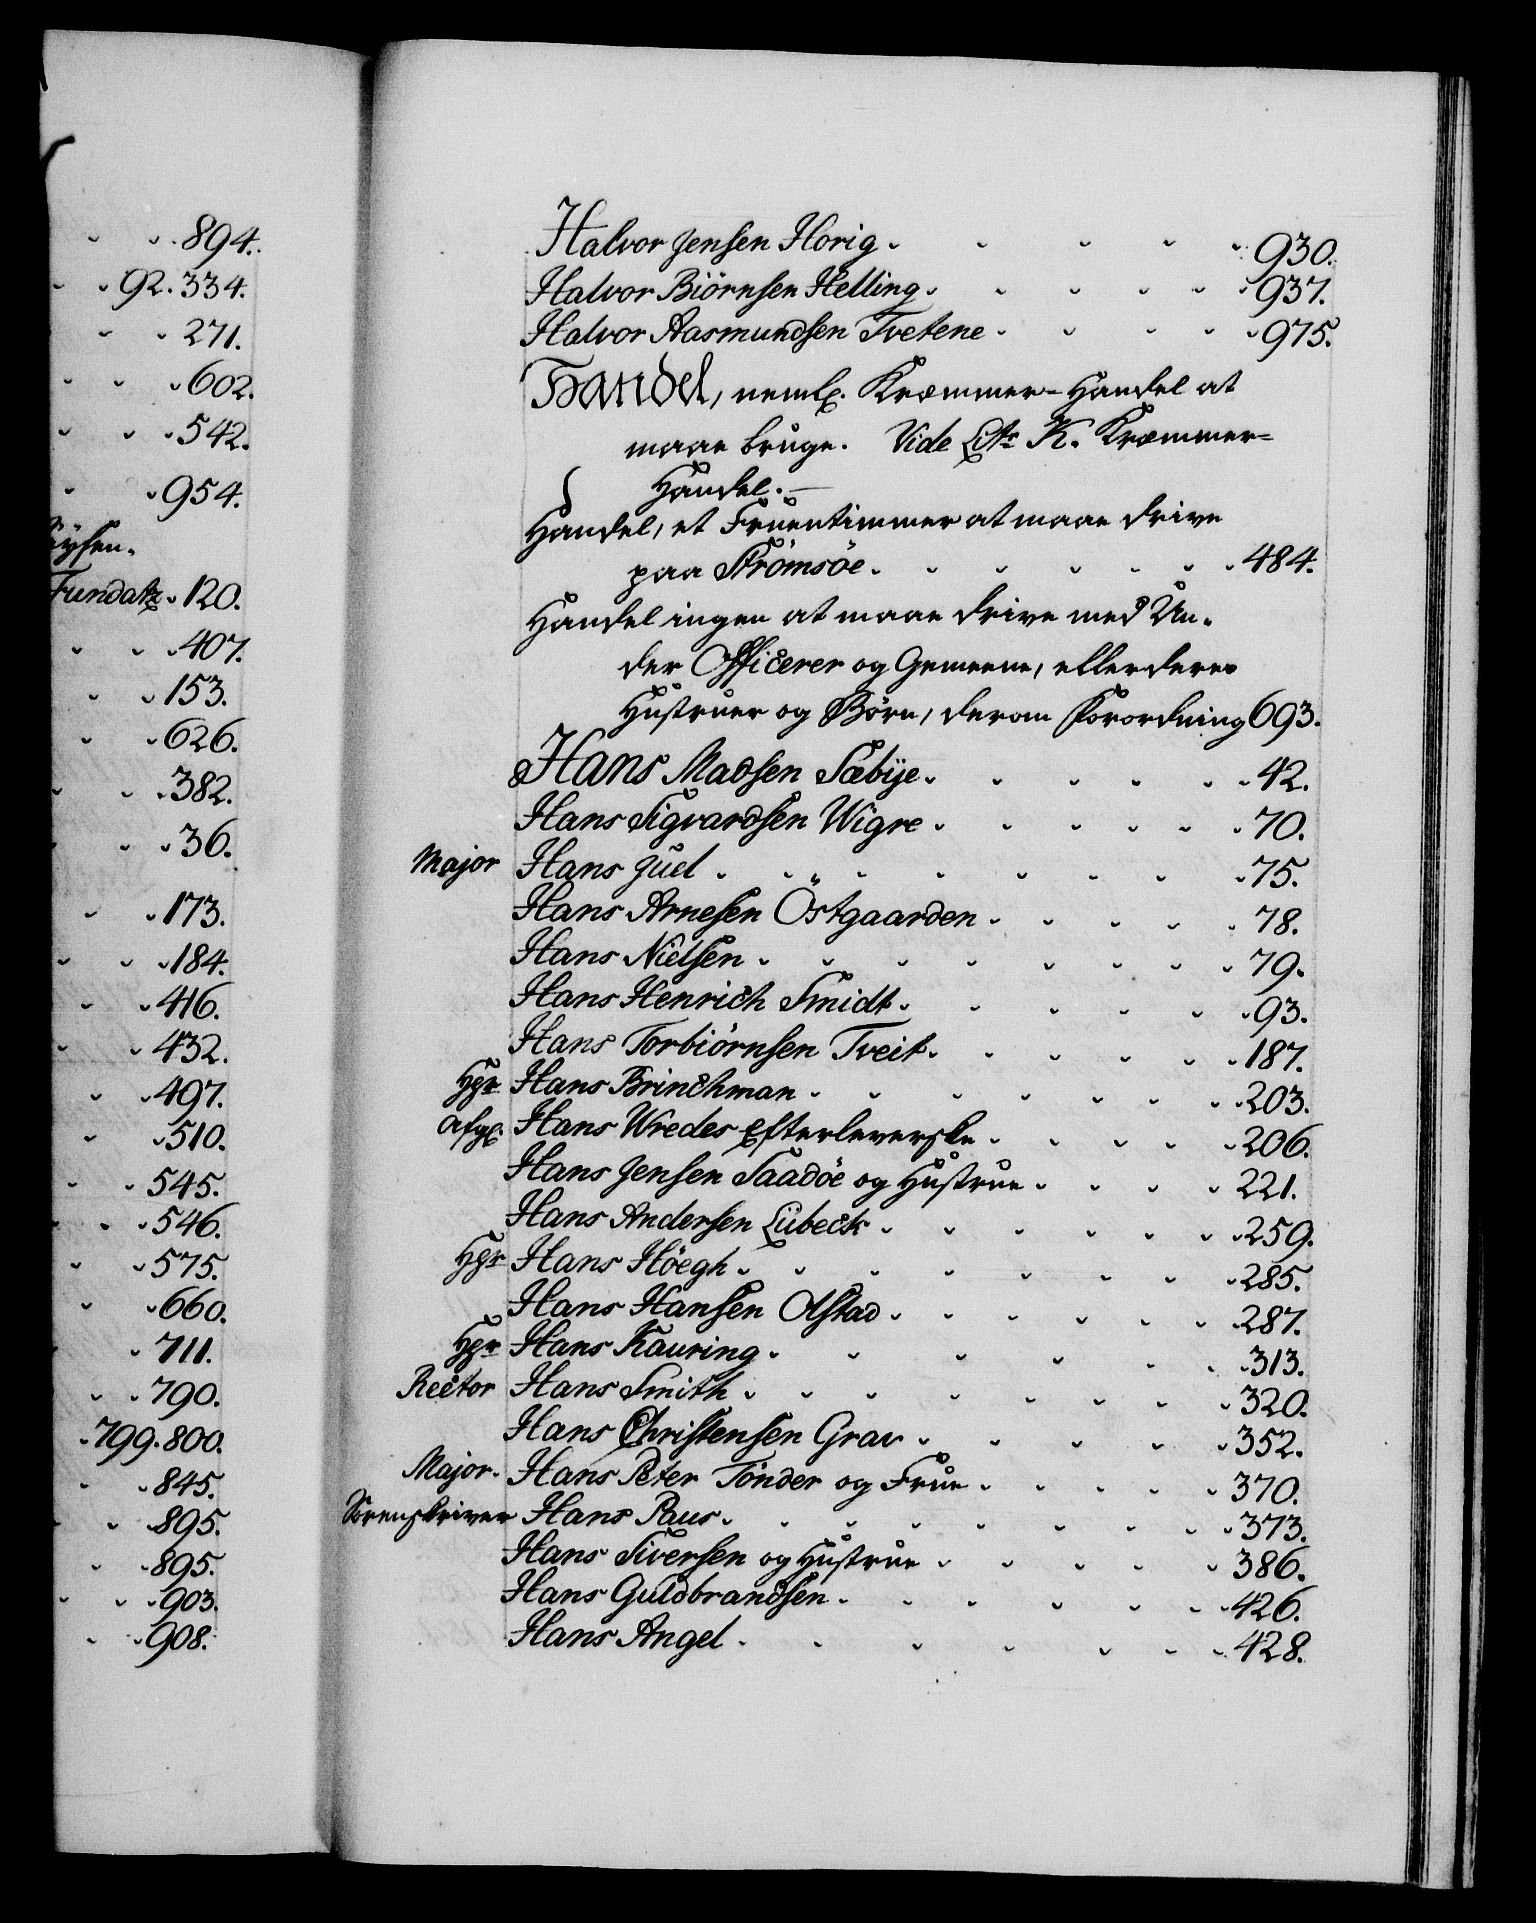 894.
92. 334.
271.
602.
542.
954.
Fundatz 120.
407.
153.
626.
382.
36.
173.
184.
416.
432.
497.
510.
545.
546.
575.
660.
711.
790.
799. 800.
845.
895.
895.
903.
908.
Halvor Jensen Horig 930.
Halvor Biörnsen Helling 937.
Halvor Aasmundsen Tvetene 975.
Handel, neml. Kræmmer-Handel at
maae bruge. Vide Litr K. Kræmmer-
Handel.
Handel, et Fruentimmer at maae drive
paa Strömsöe 484.
Handel ingen at maae drive med Un-
der Officerer og Gemeene, eller deres
Hustruer og Børn, derom Forordning 693.
Hans Madsen Sæbÿe 42.
Hans Sigvardsen Wigre 70.
Major Hans Juel 75.
Hans Arnesen Östgaarden 78.
Hans Nielsen 79.
Hans Henrich Smidt 93.
Hans Torbiörnsen Tveit 187.
Hgr Hans Brinchman 203.
Afg. Hans Wredes Efterleverske 206.
Hans Jensen Saadöe og Hustrue 221.
Hans Andersen Lübeck 259.
Hgr Hans Höegh 285.
Hans Hansen Olstad 287.
Hgr Hans Kauring 313.
Rector Hans Smith 320.
Hans Christensen Grav 352.
Major Hans Peter Tönder og Frue 370.
Sorenskriver Hans Paus 373.
Hans Siversen og Hustrue 386.
Hans Guldbrandsen 426.
Hans Angel 428.